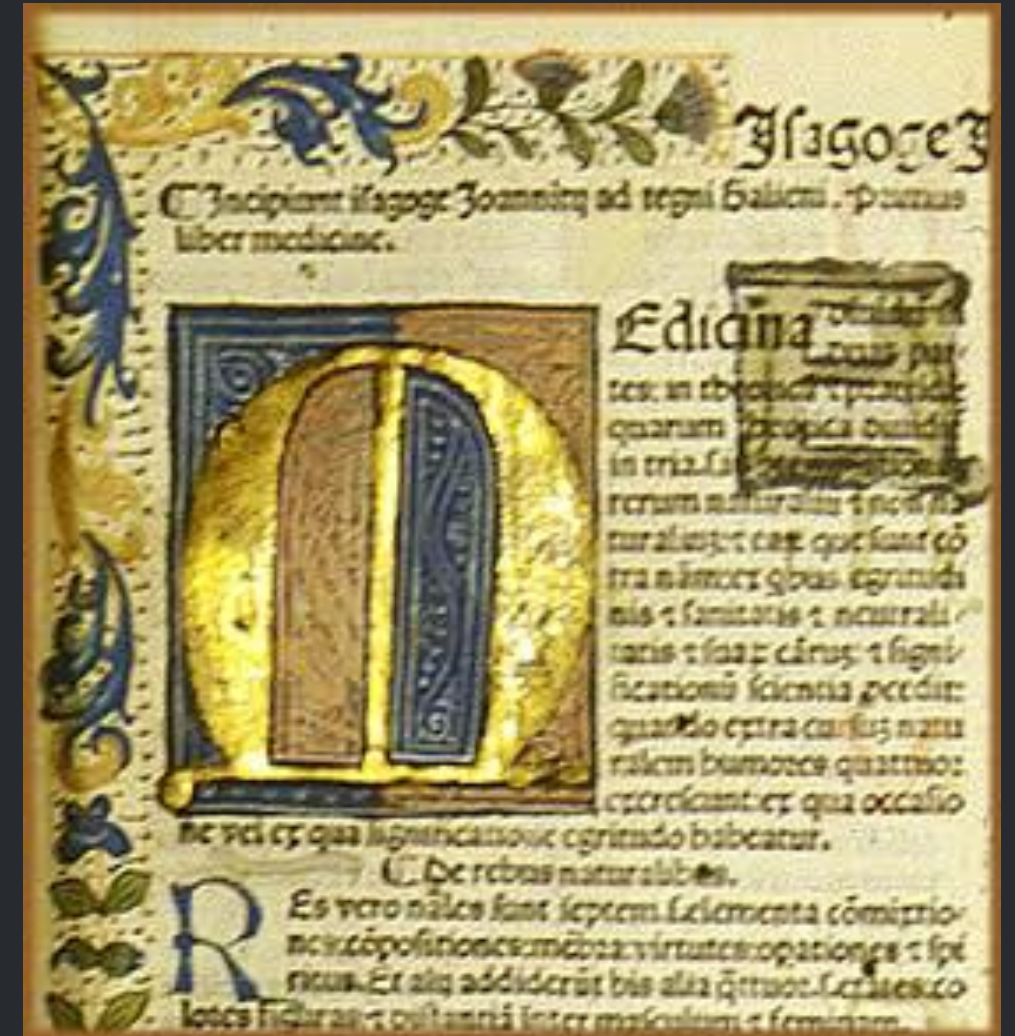 Isagoge J
Incipiunt isagoge Joannitij ad tegni Galieni. Primus
liber medicine.
MEdicina
duas par
tes: in theorica ⁊ practica
quarum theorica diuidit
in tria
rerum naturaliũ ⁊ non na
turaliuꝫ: ⁊ eaꝝ que sunt cõ
tra nãm: ex qbus egritudi
nis ⁊ sanitatis ⁊ neutrali
tatis ⁊ signi
ficationũ scientia ꝓcedit:
quando extra cursuꝫ natu
ralem humores quattuor
excrescant: ex qua occasio
ne vel ex qua significatione egritudo habeatur.
De rebus naturalibus.
REs vero nãles sunt septem. s. elementa cõmixtio
nes: cõpositiones: mẽbra: virtutes: opationes ⁊ spi
ritus. Et alij addiderũt his alia q̃ttuor. s. etates: co
lores: figuras: ⁊ distantiã inter masculum ⁊ feminam